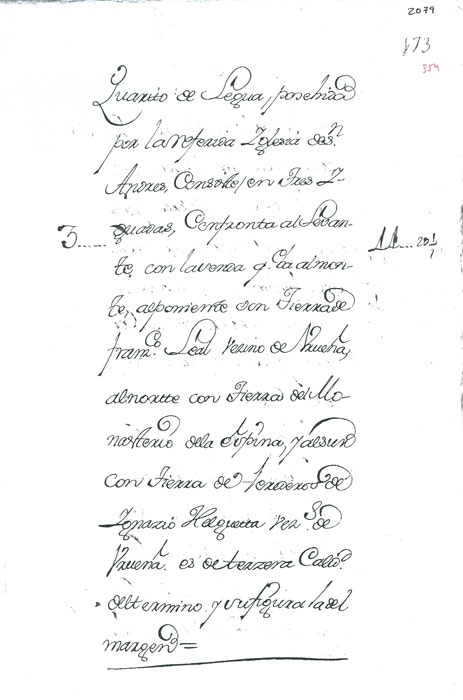 2079
173
354
Quartto de Legua, posehida
por la referida Iglesia de Sn.
Andres, Consiste, en Tres Y-
3..... guadas, Confronta al Levan- 11.... 20 1/
te, con la venda q.e ba al mon-
te, al poniente con Tierra de
Franz.co Leal vezino de Vrueña,
al nortte con Tierra del Mo-
nasterio de la Espina, y al sur
con Tierra de herederos de
Ygnazio Helguetta vez.s de
Vrueña. es de terzera Calid.d
del termino y su figura la del
margen=